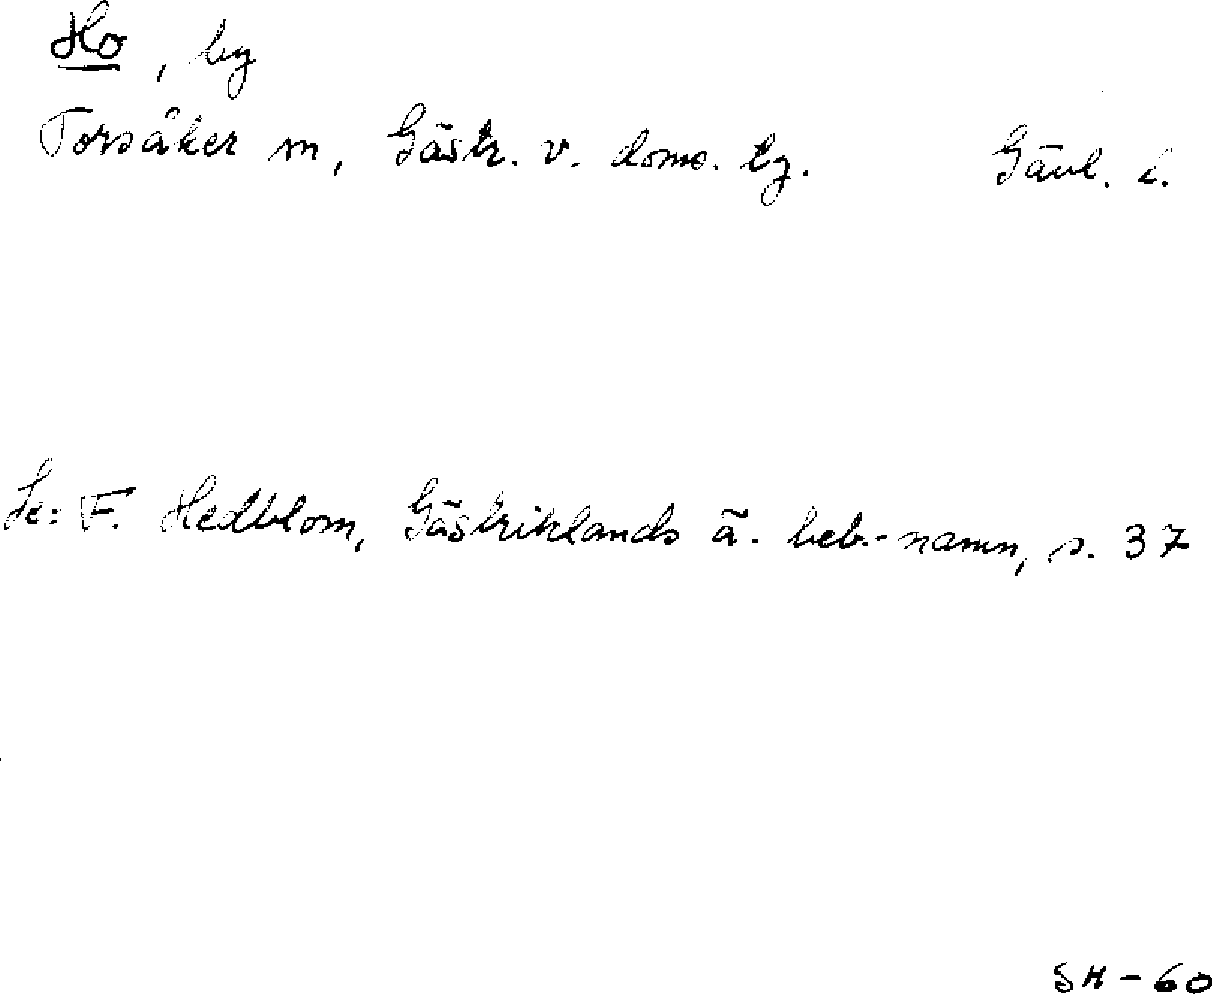 Ho, by
Torsåker sn, Gästr. v. doms. tg. Gävl. l.
Se: F. Hedblom, Gästriklands ä. beb.-namn, s. 37
SH-60